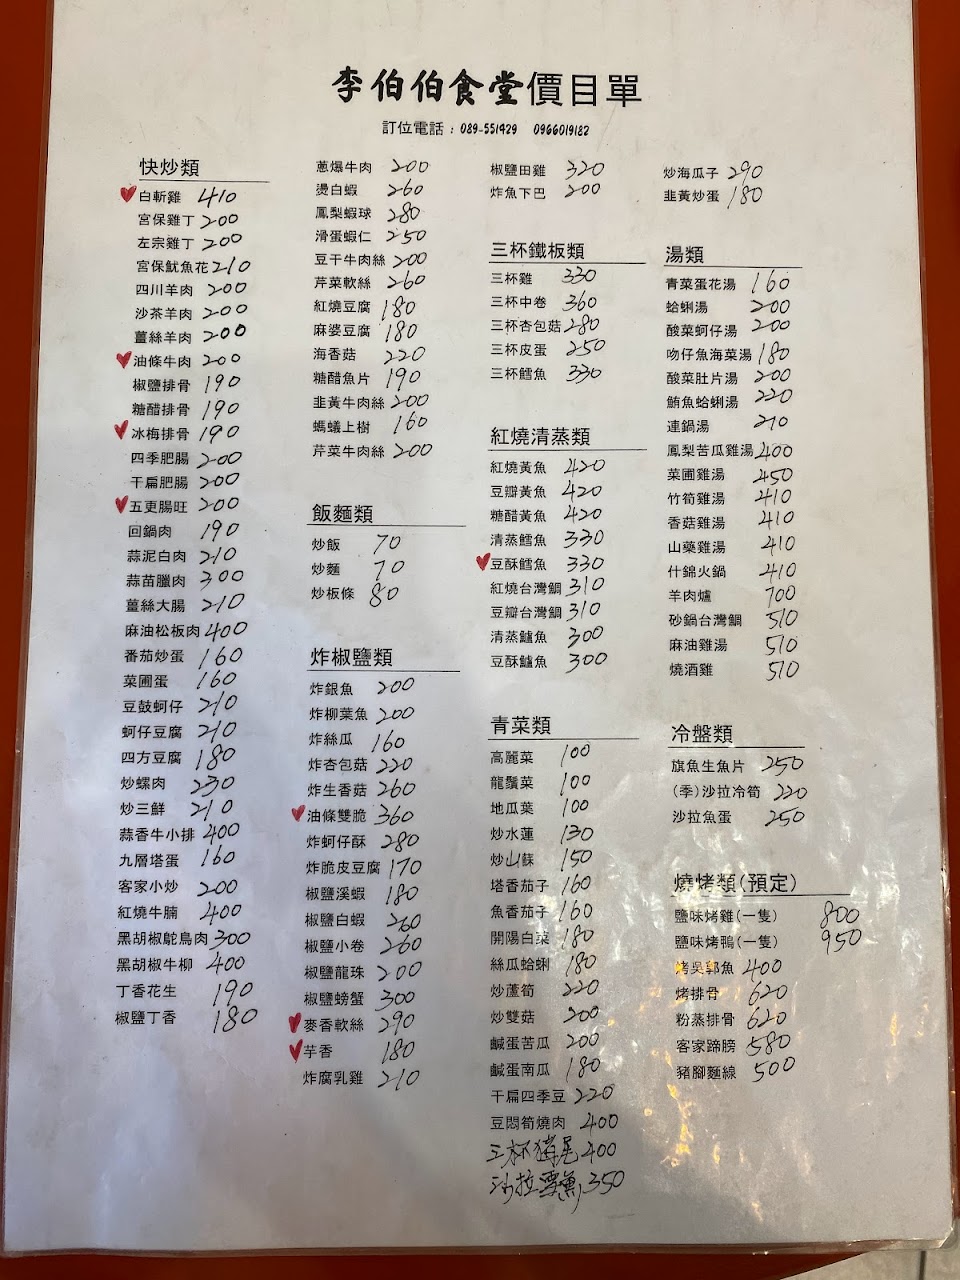 李伯伯食堂價目單
訂位電話：089-551429 0966019182
快炒類
白斬雞 410
宮保雞丁 200
左宗雞丁 200
宮保魷魚花 210
四川羊肉 200
沙茶羊肉 200
薑絲羊肉 200
油條牛肉 200
椒鹽排骨 190
糖醋排骨 190
冰梅排骨 190
四季肥腸 200
干扁肥腸 200
五更腸旺 200
回鍋肉 190
蒜泥白肉 210
蒜苗臘肉 300
薑絲大腸 210
麻油松板肉 400
番茄炒蛋 160
菜圃蛋 160
豆鼓蚵仔 210
蚵仔豆腐 210
四方豆腐 180
炒螺肉 230
炒三鮮 210
蒜香牛小排 400
九層塔蛋 160
客家小炒 200
紅燒牛腩 400
黑胡椒鴕鳥肉 300
黑胡椒牛柳 400
丁香花生 190
椒鹽丁香 180
蔥爆牛肉 200
燙白蝦 260
鳳梨蝦球 280
滑蛋蝦仁 250
豆干牛肉絲 200
芹菜軟絲 260
紅燒豆腐 180
麻婆豆腐 180
海香菇 220
糖醋魚片 190
韭黃牛肉絲 200
螞蟻上樹 160
芹菜牛肉絲 200
飯麵類
炒飯 70
炒麵 70
炒板條 80
炸椒鹽類
炸銀魚 200
炸柳葉魚 200
炸絲瓜 160
炸杏包菇 220
炸生香菇 260
油條雙脆 360
炸蚵仔酥 280
炸脆皮豆腐 170
椒鹽溪蝦 180
椒鹽白蝦 260
椒鹽小卷 260
椒鹽龍珠 200
椒鹽螃蟹 300
麥香軟絲 290
芋香 180
炸腐乳雞 210
椒鹽田雞 320
炸魚下巴 200
三杯鐵板類
三杯雞 330
三杯中卷 360
三杯杏包菇 280
三杯皮蛋 250
三杯鱈魚 330
紅燒清蒸類
紅燒黃魚 420
豆瓣黃魚 420
糖醋黃魚 420
清蒸鱈魚 330
豆酥鱈魚 330
紅燒台灣鯛 310
豆瓣台灣鯛 310
清蒸鱸魚 300
豆酥鱸魚 300
青菜類
高麗菜 100
龍鬚菜 100
地瓜葉 100
炒水蓮 130
炒山蘇 150
塔香茄子 160
魚香茄子 160
開陽白菜 180
絲瓜蛤蜊 180
炒蘆筍 220
炒雙菇 200
鹹蛋苦瓜 200
鹹蛋南瓜 180
干扁四季豆 220
豆悶筍燒肉 400
三杯豬尾 400
沙拉雪魚 350
炒海瓜子 290
韭黃炒蛋 180
湯類
青菜蛋花湯 160
蛤蜊湯 200
酸菜蚵仔湯 200
吻仔魚海菜湯 180
酸菜肚片湯 200
鮪魚蛤蜊湯 220
連鍋湯 210
鳳梨苦瓜雞湯 400
菜圃雞湯 450
竹筍雞湯 410
香菇雞湯 410
山藥雞湯 410
什錦火鍋 410
羊肉爐 700
砂鍋台灣鯛 510
麻油雞湯 510
燒酒雞 510
冷盤類
旗魚生魚片 250
(季)沙拉冷筍 220
沙拉魚蛋 250
燒烤類(預定)
鹽味烤雞(一隻) 800
鹽味烤鴨(一隻) 950
烤吳郭魚 400
烤排骨 620
粉蒸排骨 620
客家蹄膀 580
豬腳麵線 500